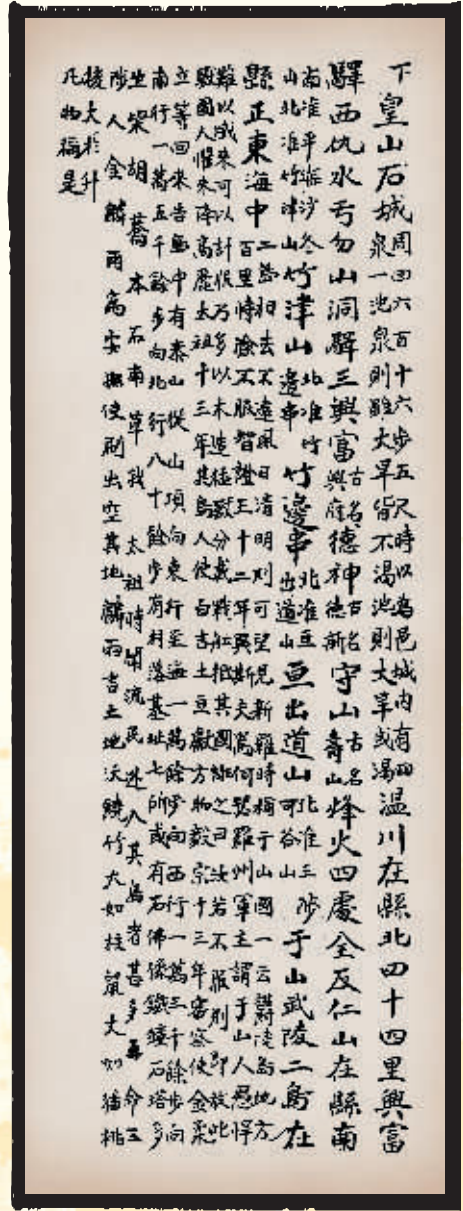 下皇山石城周回六百十六步五尺時以爲邑城內有四泉一池泉則雖大旱皆不渴池則大旱或渴溫川在縣北四十四里興富
驛西仇水亐勿山洞驛三興富古名興府德神古名德新守山古名壽山烽火四處全反仁山在縣南
南准平海沙冬山北准竹津山竹津山北准竹邊串竹邊串北准亘出道山亘出道山北准三陟可谷山于山武陵二島在
縣正東海中二島相去不遠風日淸明則可望見新羅時稱于山國一云鬱陵島地方
百里恃險不服智證王十二年異斯夫爲何瑟羅州軍主謂于山人愚悍
難以威來可以計服乃多以木造猛獸分載戰舡抵其國誑之曰汝若不服則卽放此
獸國人懼來降高麗太祖十三年其島人使白吉土豆獻方物毅宗十三年審察使金柔
立等回來告島中有泰山從山頂向東行至海一萬餘步向西行一萬三千餘步向
南行一萬五千餘步向北行八十餘步有村落基址七所或有石佛像鐵鐘石塔多
生柴胡蒿本石南草我 太祖時聞流民逃入其島者甚多再命三
陟人金麟雨爲安撫使刷出空其地麟雨言土地沃饒竹大如杠鼠大如猫桃
核大於升
凡物稱是